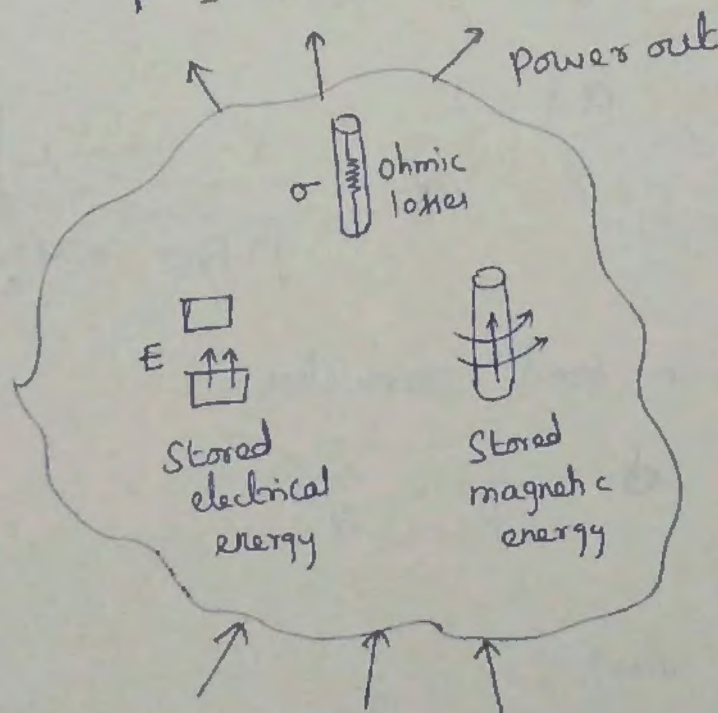 Power out
σ
ohmic
losses
E
Stored
electrical
energy
Stored
magnetic
energy